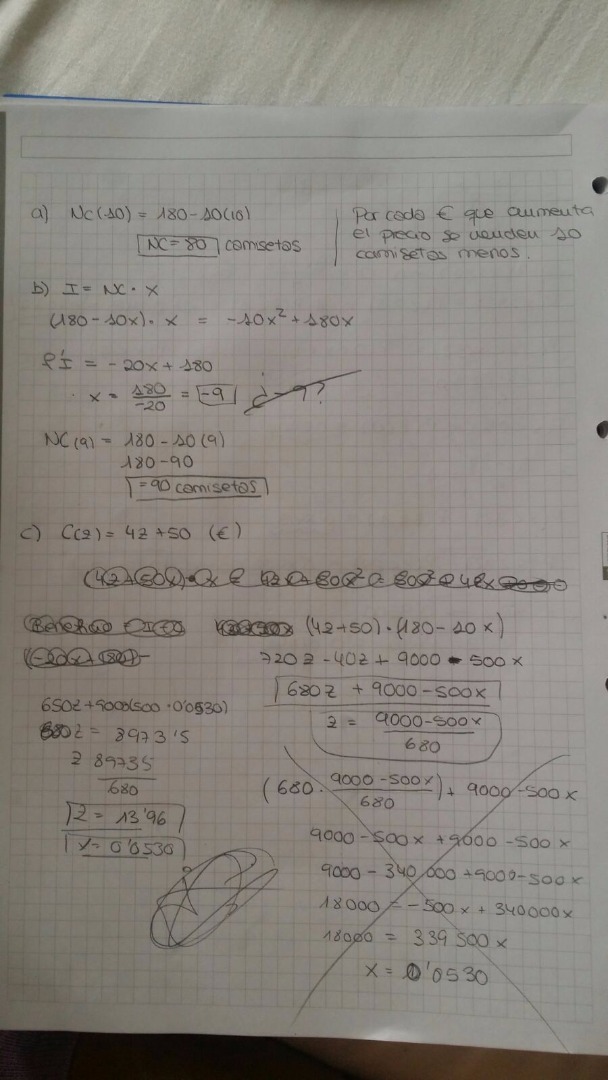 a) Nc(10) = 180 - 10(10)
Nc = 80 camsetas
Por cada € que aumenta
el precio se venden 10
camisetas menos.
b) I = Nc · x
(180 - 10x) · x = -10x² + 180x
I' = -20x + 180
x = 180/-20 = -9 ¿-9?
NC(9) = 180 - 10(9)
180 - 90
= 90 camisetas
c) C(z) = 4z + 50 (€)
(4z + 50) · (180 - 10x)
720z - 40z + 9000 - 500x
680z + 9000 - 500x
z = 9000 - 500x / 680
650z + 9000(500 · 0'0530)
680z = 8973'5
z 89735 / 680
z = 13'96
x = 0'0530
(680 · 9000 - 500x / 680) + 9000 - 500x
9000 - 500x + 9000 - 500x
9000 - 340,000 + 9000 - 500x
18000 = -500x + 340000x
18000 = 339500x
x = 0'0530